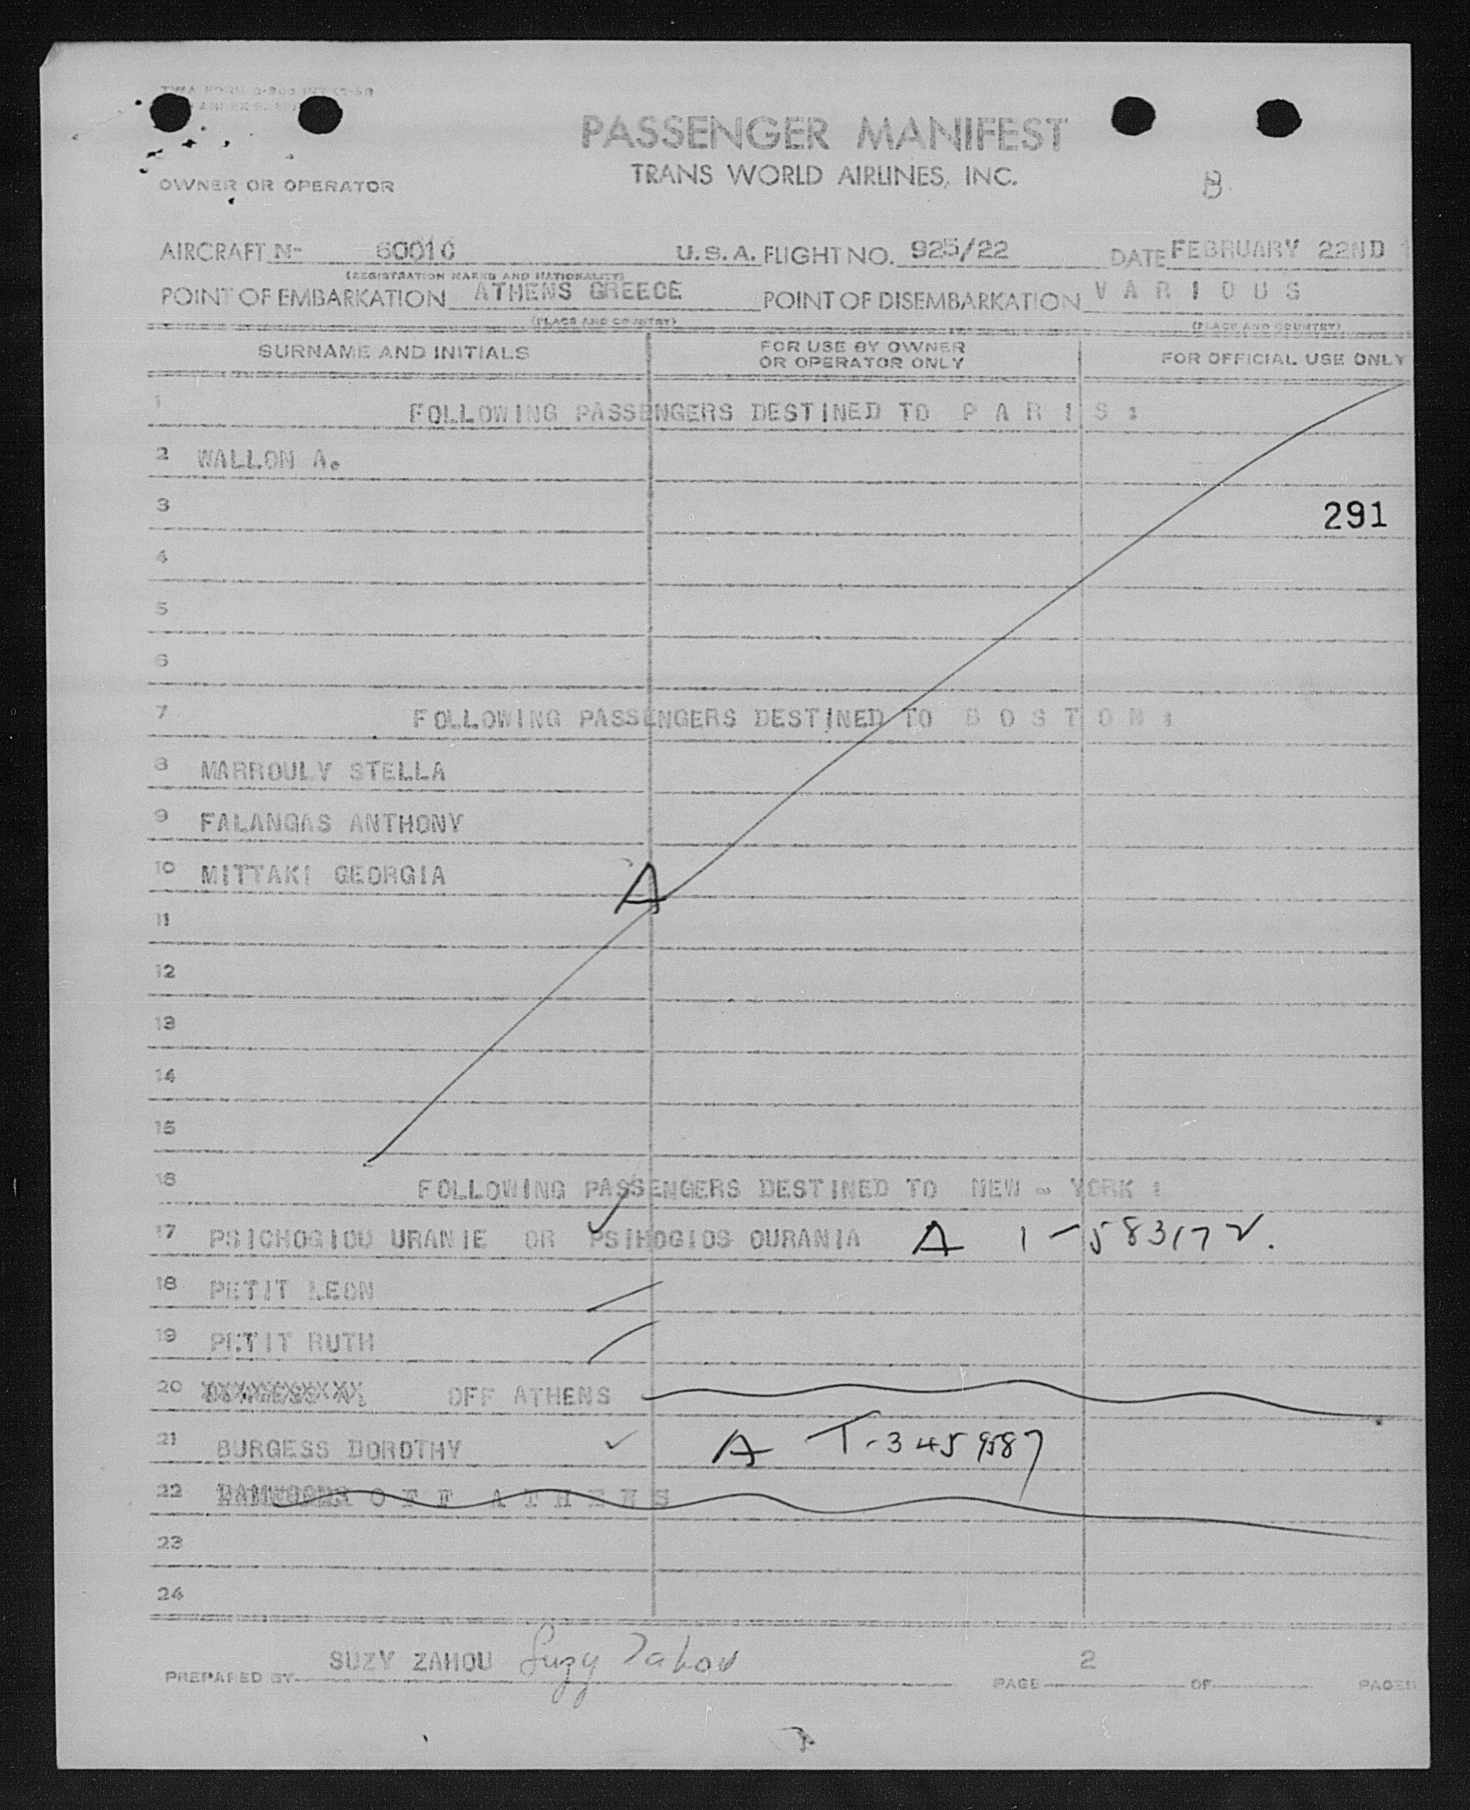 PASSENGER MANIFEST
TRANS WORLD AIRLINES, INC.
OWNER OR OPERATOR
B
AIRCRAFT Nº 60010 U.S.A. FLIGHT NO. 925/22 DATE FEBRUARY 22ND
(REGISTRATION MARKS AND NATIONALITY)
POINT OF EMBARKATION ATHENS GREECE POINT OF DISEMBARKATION V A R I O U S
(PLACE AND COUNTRY) (PLACE AND COUNTRY)
SURNAME AND INITIALS FOR USE BY OWNER OR OPERATOR ONLY FOR OFFICIAL USE ONLY
1 FOLLOWING PASSENGERS DESTINED TO P A R I S :
2 WALLON A.
3 291
4
5
6
7 FOLLOWING PASSENGERS DESTINED TO B O S T O N :
8 MARROULY STELLA
9 FALANGAS ANTHONY
10 MITTAKI GEORGIA A
11
12
13
14
15
16 FOLLOWING PASSENGERS DESTINED TO NEW - YORK :
17 PSICHOGIOU URANIE OR PSIHOGIOS OURANIA A 1-583172.
18 PETIT LEON
19 PETIT RUTH
20 OFF ATHENS
21 BURGESS DOROTHY A T-3459587
22 O F F A T H E N S
23
24
PREPARED BY SUZY ZAHOU Suzy Zahou PAGE 2 OF PAGES